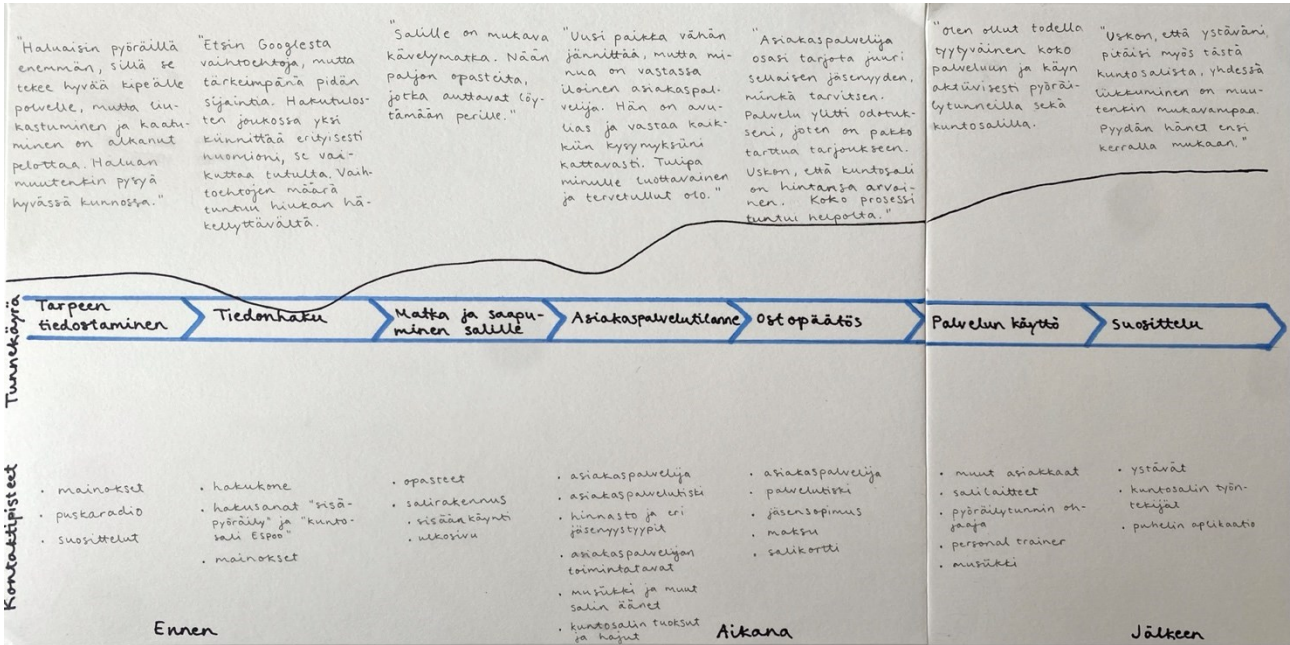 "Haluaisin pyöräillä
enemmän, sillä se
tekee hyvää kipeälle
polvelle, mutta liu-
kastuminen ja kaatu-
minen on alkanut
pelottaa. Haluan
muutenkin pysyä
hyvässä kunnossa."
"Etsin Googlesta
vaihtoehtoja, mutta
tärkeimpänä pidän
sijaintia. Hakutulos-
ten joukossa yksi
kiinnittää erityisesti
huomioni, se vai-
kuttaa tutulta. Vaih-
toehtojen määrä
tuntuu hiukan hä-
kellyttävältä.
"Salille on mukava
kävelymatka. Nään
paljon opasteita,
jotka auttavat löy-
tämään perille."
"Uusi paikka vähän
jännittää, mutta mi-
nua on vastassa
iloinen asiakaspal-
velija. Hän on avu-
lias ja vastaa kaik-
kiin kysymyksiini
kattavasti. Tulipa
minulle luottavainen
ja tervetullut olo."
"Asiakaspalvelija
osasi tarjota juuri
sellaisen jäsenyyden,
minkä tarvitsen.
Palvelu ylitti odotuk-
seni, joten on pakko
tarttua tarjoukseen.
Uskon, että kuntosali
on hintansa arvoi-
nen. Koko prosessi
tuntui helpolta."
"Olen ollut todella
tyytyväinen koko
palveluun ja käyn
aktiivisesti pyöräi-
lytunneilla sekä
kuntosalilla.
"Uskon, että ystäväni
pitäisi myös tästä
kuntosalista, yhdessä
liikkuminen on muu-
tenkin mukavampaa.
Pyydän hänet ensi
kerralla mukaan."
Tunnekäyrä
Tarpeen
tiedostaminen
Tiedonhaku
Matka ja saapu-
minen salille
Asiakaspalvelutilanne
Ostopäätös
Palvelun käyttö
Suosittelu
Kontaktipisteet
• mainokset
• puskaradio
• suosittelut
• hakukone
• hakusanat "sisä-
pyöräily" ja "kunto-
sali Espoo"
• mainokset
• opasteet
• salirakennus
• sisäänkäynti
• ulkosivu
• asiakaspalvelija
• asiakaspalvelutiski
• hinnasto ja eri
jäsenyystyypit
• asiakaspalvelijan
toimintatavat
• musiikki ja muut
salin äänet
• kuntosalin tuoksut
ja hajut
• asiakaspalvelija
• palvelutiski
• jäsensopimus
• maksu
• salikortti
• muut asiakkaat
• salilaitteet
• pyöräilytunnin oh-
jaaja
• personal trainer
• musiikki
• ystävät
• kuntosalin työn-
tekijät
• puhelin aplikaatio
Ennen
Aikana
Jälkeen